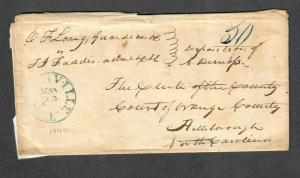 O F Long, Guardian &c
vs
J S Faddis adm &c
Deposition of
50
The Clerk of the County
Court of Orange County
Hillsborough
North Carolina
VILLE
MAY
1840